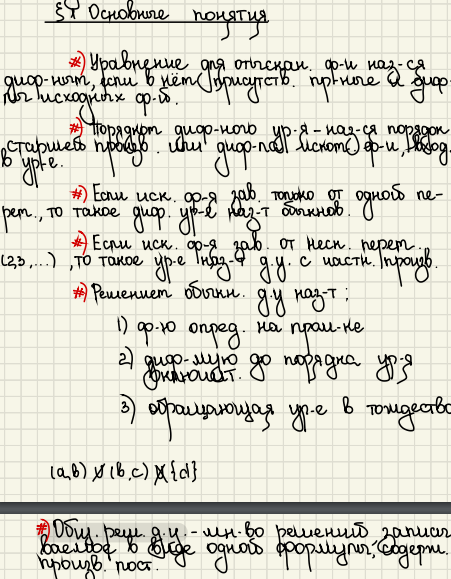 §1 Основные понятия
*) Уравнение для отыскан. ф-и наз-ся
диф-ным, если в нём присутств. пр-ные и диф-
лы исходных ф-й.
*) Порядком диф-ного ур-я - наз-ся порядок
старшей произв. или диф-ла иском. ф-и, вход.
в ур-е.
*) Если иск. ф-я зав. только от одного пе-
рем., то такое диф. ур-е наз-т обыкнов.
*) Если иск. ф-я зав. от неск. перем.
(2,3,...), то такое ур-е наз-т д.у. с частн. произв.
*) Решением обыкн. д.у наз-т:
1) ф-ю опред. на пром-ке
2) диф-мую до порядка ур-я
включит.
3) обращающая ур-е в тождество
(a,b) (b,c) {d}
*) Общ. реш. д.у. - мн-во решений записы
ваемое в виде одной формулы, содерж.
произв. пост.